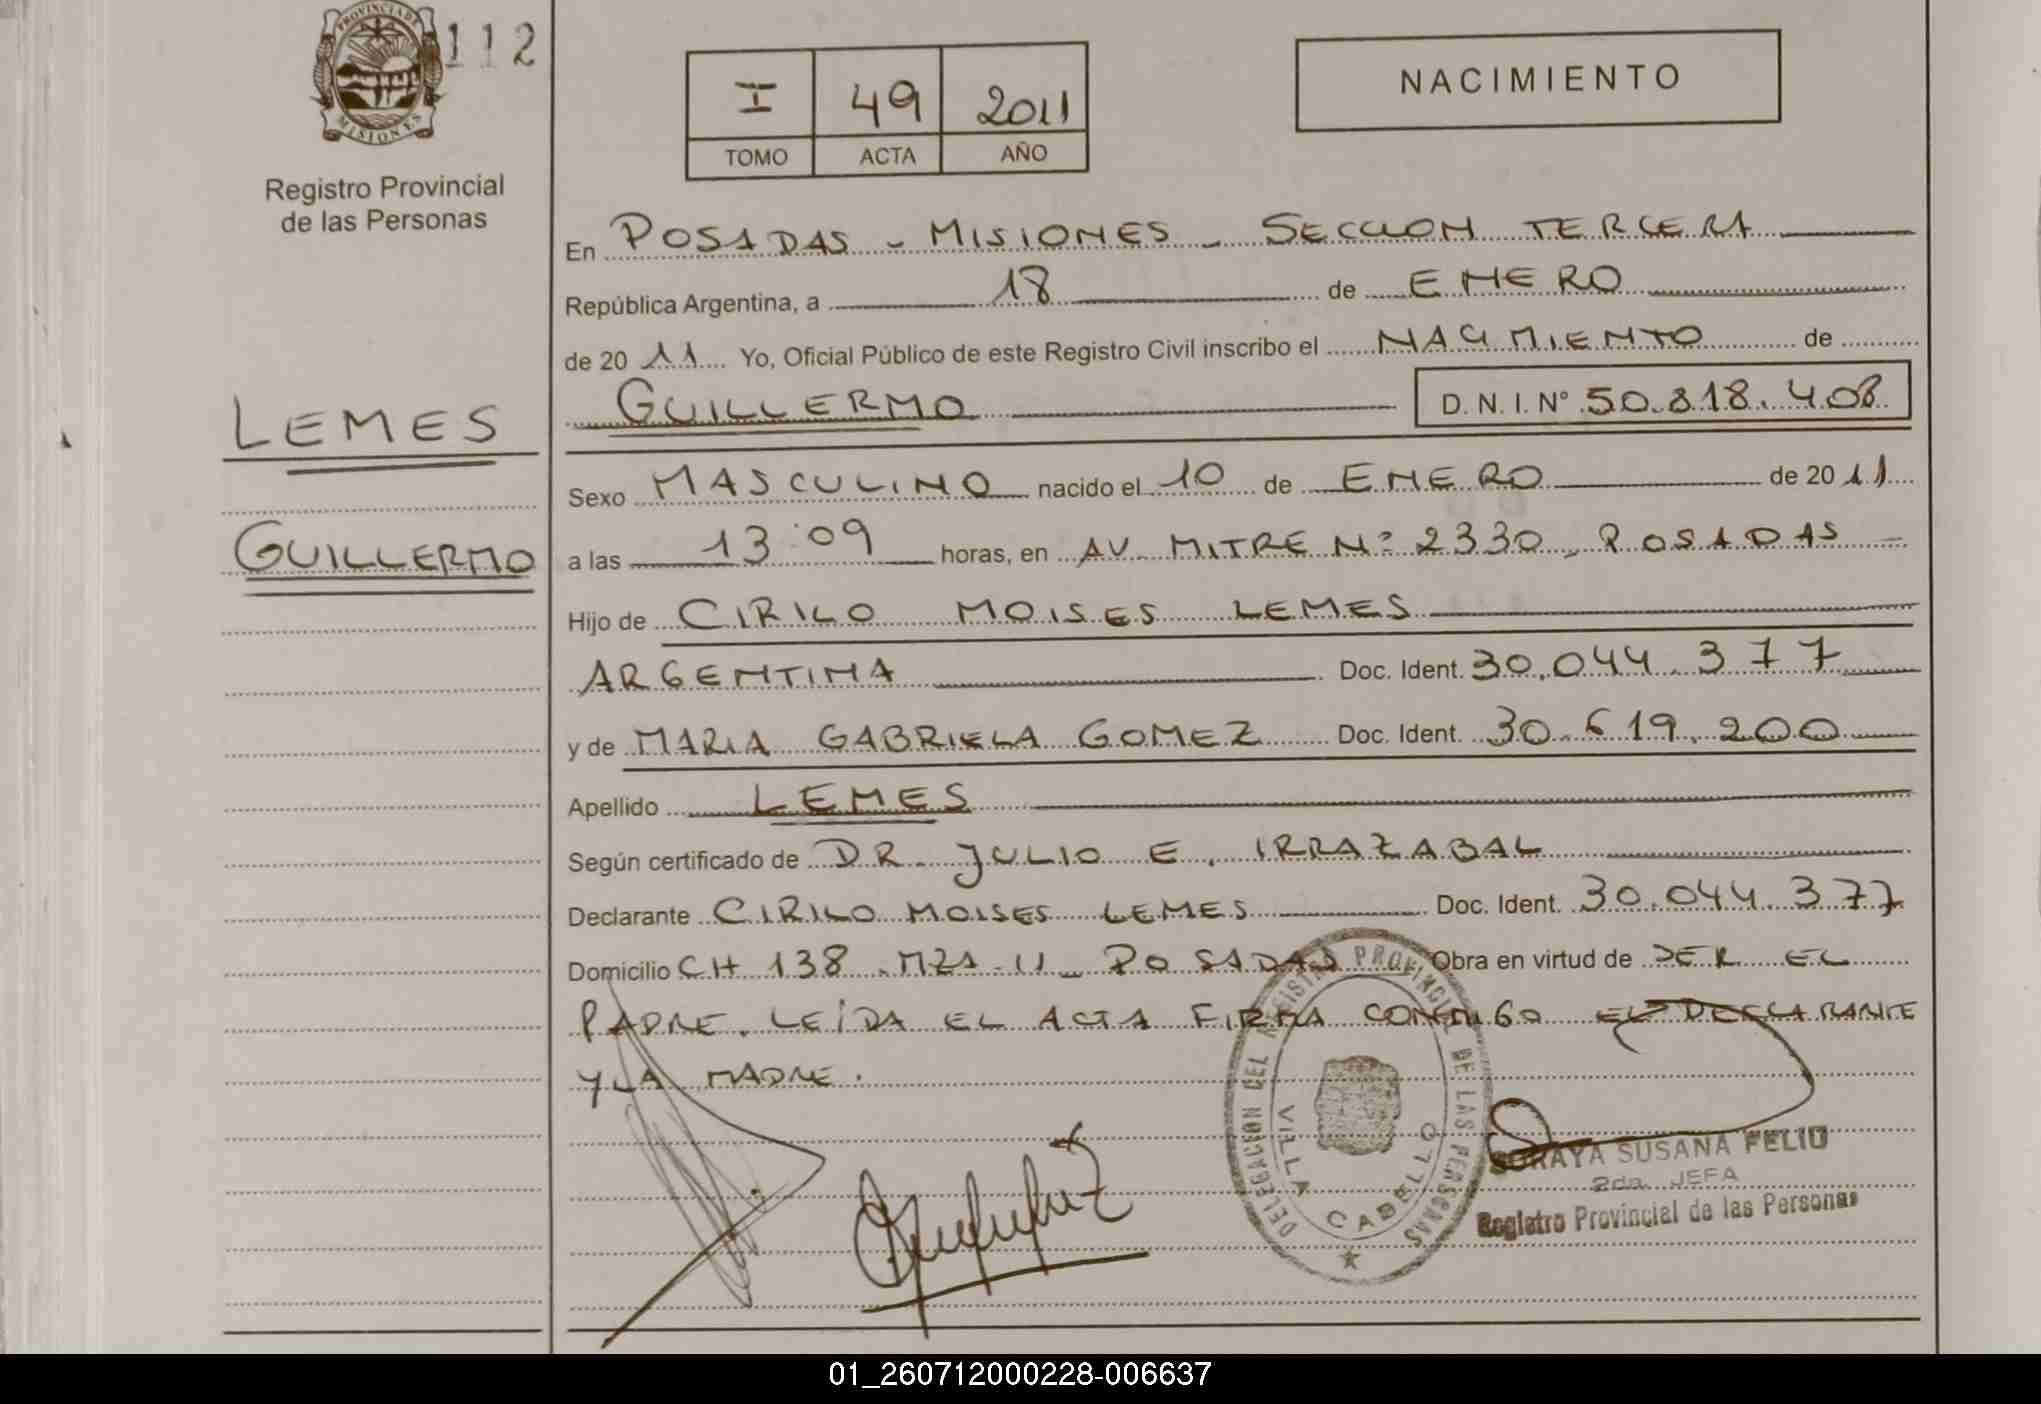 PROVINCIA DE
MISIONES
112
Registro Provincial
de las Personas
I 49 2011
TOMO ACTA AÑO
NACIMIENTO
En POSADAS - MISIONES - SECCION TERCERA
República Argentina, a 18 de ENERO
de 20 11 Yo, Oficial Público de este Registro Civil inscribo el NACIMIENTO de
GUILLERMO D. N. I. Nº 50.818.408
LEMES
GUILLERMO
Sexo MASCULINO nacido el 10 de ENERO de 20 11
a las 13:09 horas, en AV. MITRE Nº 2330 - POSADAS
Hijo de CIRILO MOISES LEMES
ARGENTINA Doc. Ident. 30.044.377
y de MARIA GABRIELA GOMEZ Doc. Ident. 30.619.200
Apellido LEMES
Según certificado de DR. JULIO E. IRRAZABAL
Declarante CIRILO MOISES LEMES Doc. Ident. 30.044.377
Domicilio CH 138 . MZA 11 - POSADAS Obra en virtud de SER EL
PADRE. LEÍDA EL ACTA FIRMA CONMIGO EL DECLARANTE
Y LA MADRE.
DELEGACION DEL REGISTRO PROVINCIAL DE LAS PERSONAS
VILLA CABELLO
SORAYA SUSANA FELIU
2da. JEFA
Registro Provincial de las Personas
01_260712000228-006637